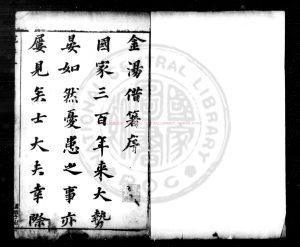 金湯借箸序
國家三百年來大勢
晏如然憂患之事亦
屢見矣士大夫幸際